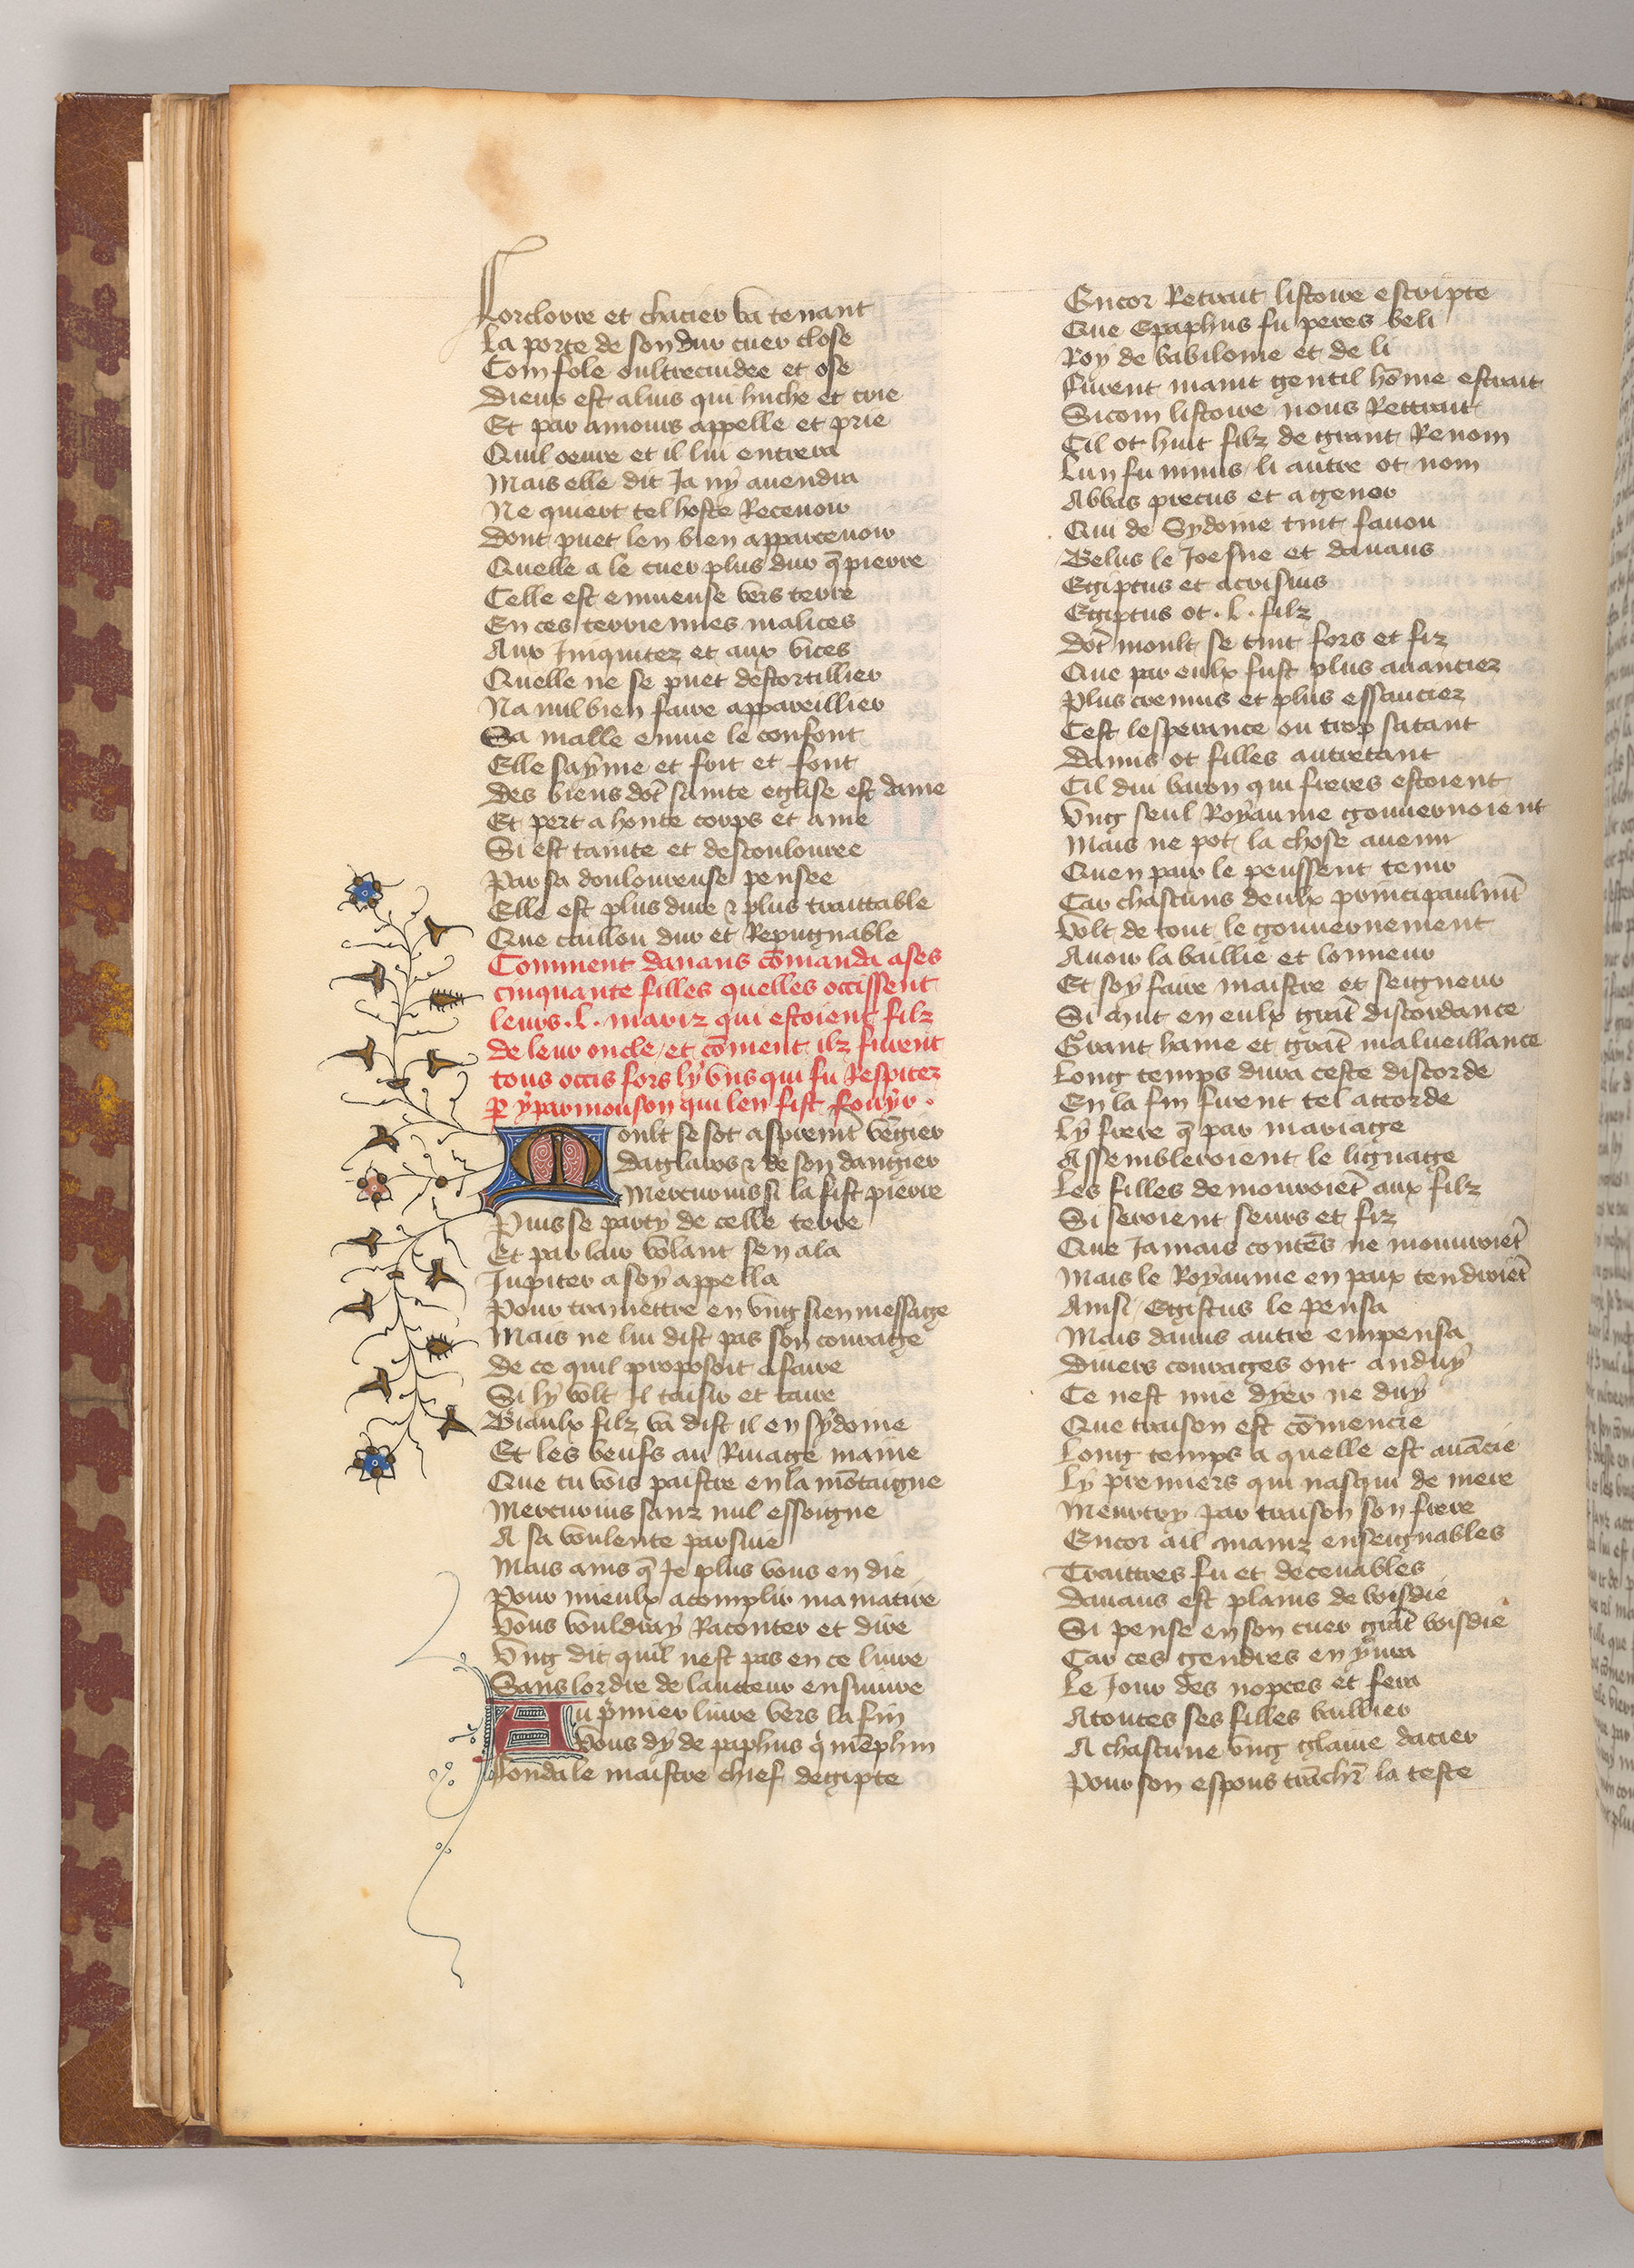 Forclorre et chacier va tenant
La porte de son dur cuer close
Com fole oultrecuidee et ose
Dieus est aluis qui huche et crie
Et par amours appelle et prie
Quil oeure et il lui entrera
Mais elle dit Ja ny auendra
Ne quiert tel hoste Receuoir
Dont puet len bien apparceuoir
Quelle a le cuer plus dur q̄ pierre
Celle est enuieuse vers terre
En ces terriennes malices
Aux Iniquitez et aux vices
Quelle ne se puet destortillier
Na nul bien faire appareillier
Sa malle enuie le confont
Elle sayme et foit et font
Des biens dōt sainte eglise est dame
Et pert a honte corps et ame
Si est tainte et descoulouree
Par sa douloureuse pensee
Elle est plus dure ⁊ plus traittable
Que caillou dur et Repugnable
Comment danaus cōmanda a ses
cinquante filles quelles occissent
leurs .L. mariz qui estoient filz
de leur oncle et cōment ilz furent
tous occis fors ly vns qui fu Respitez
ꝑ yparmouson qui len fist fouyr .
Moult se sot aspremēt vēgier
Daglaros ⁊ de son dangier
Mercurius si la fist pierre
Puis se party de celle terre
Et par lair volant sen ala
Jupiter a soy appella
Pour tramettre en vng sien message
Mais ne lui dist pas son courage
De ce quil proposoit a faire
Si ly volt Il taisir et taire
Biaulx filz va dist il en sydoine
Et les beufs au Riuage maine
Que tu vois paistre en la mōtaigne
Mercurius sanz nul essoigne
A sa voulente parsiue
Mais ains q̄ Je plus vous en die
Pour mieulx acomplir ma matire
Vous vouldray Raconter et dire
Vng dit quil nest pas en ce liure
Sans lordre de lautteur ensuiure
Au p̄mier liure vers la fin
Vous dy de paphus q̄ mēphin
Fonda le maistre chief degipte
Encor Retrait listoire escripte
Que Epaphus fu peres beli
Roy de babiloine et de li
Furent maint gentil hōme estrait
Sicom listoire nous Rettrait
Cil ot huit filz de grant Renom
Lun fu minus li autre ot nom
Abbas precus et agenor
Qui de Sydoine tint fauou
Belus le Joesne et danaus
Egiptus et acrisius
Egiptus ot .L. filz
Dōt moult se tint fors et fiz
Que par eulx fust plus auanciez
Plus cremus et plus essauciez
Cest lesperance ou trop satant
Danus ot filles autretant
Cil dui baron qui freres estoient
Vng seul Royaume gouuernoient
Mais ne pot la chose auenir
Quen paix le peussent tenir
Car chascuns deulx principaulmēt
Volt de tout le gouuernement
Auoir la baillie et lonneur
Et soy faire maistre et seigneur
Si chut en eulx grāt discordance
Grant haine et grāt malueillance
Long temps dura ceste discorde
En la fin firent tel accorde
Ly frere q̄ par mariage
Assembleroient le lignage
Les filles demourroiēt aux filz
Si seroient seurs et fiz
Que Jamais contēs ne mouuroiēt
Mais le Royaume en paix tendroiēt
Ainsi Egistus le pensa
Mais danus autre empensa
Diuers courages ont anduy
Ce nest mie dyer ne duy
Que traison est cōmencie
Long temps a quelle est auācie
Ly premiers qui nasqui de mere
Meurtry par traison son frere
Encor ail mainz enseignables
Traittres fu et deceuables
Danaus est plains de voisdie
Si pense en son cuer grāt voisdie
Car ces gendres enyura
Le Jour des nopces et fera
A toutes ses filles baillier
A chascune vng glaiue dacier
Pour son espous trāchr̄ la teste